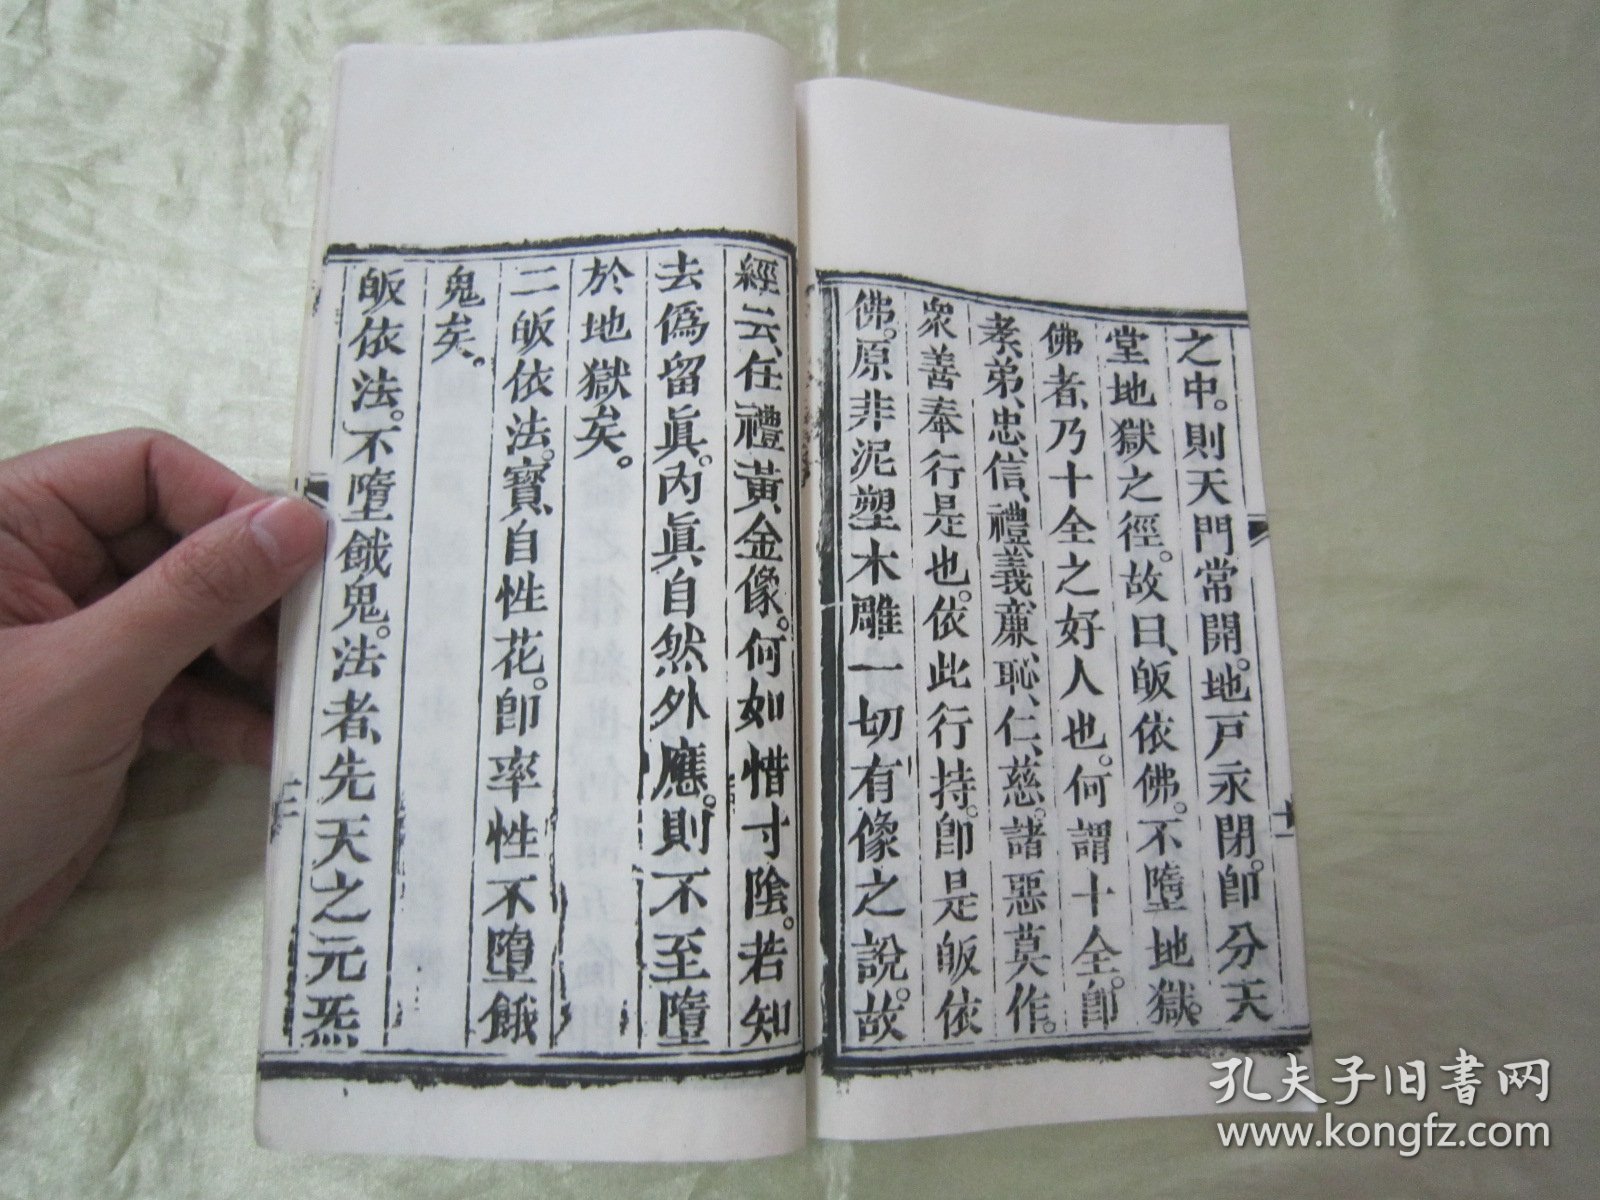 之中。則天門常開。地戸永閉。卽分天
堂地獄之徑。故曰、皈依佛。不墮地獄。
佛者、乃十全之好人也。何謂十全。卽
孝、弟、忠、信、禮、義、亷、恥、仁、慈。諸惡莫作。
衆善奉行是也。依此行持。卽是皈依
佛。原非泥塑木雕一切有像之說。故
經云、任禮黃金像。何如惜寸陰。若知
去僞留眞。內眞自然外應。則不至墮
於地獄矣。
二皈依法。寶、自性花。卽率性不墮餓
鬼矣。
皈依法。不墮餓鬼。法者、先天之元炁
十二
孔夫子旧书网
www.kongfz.com